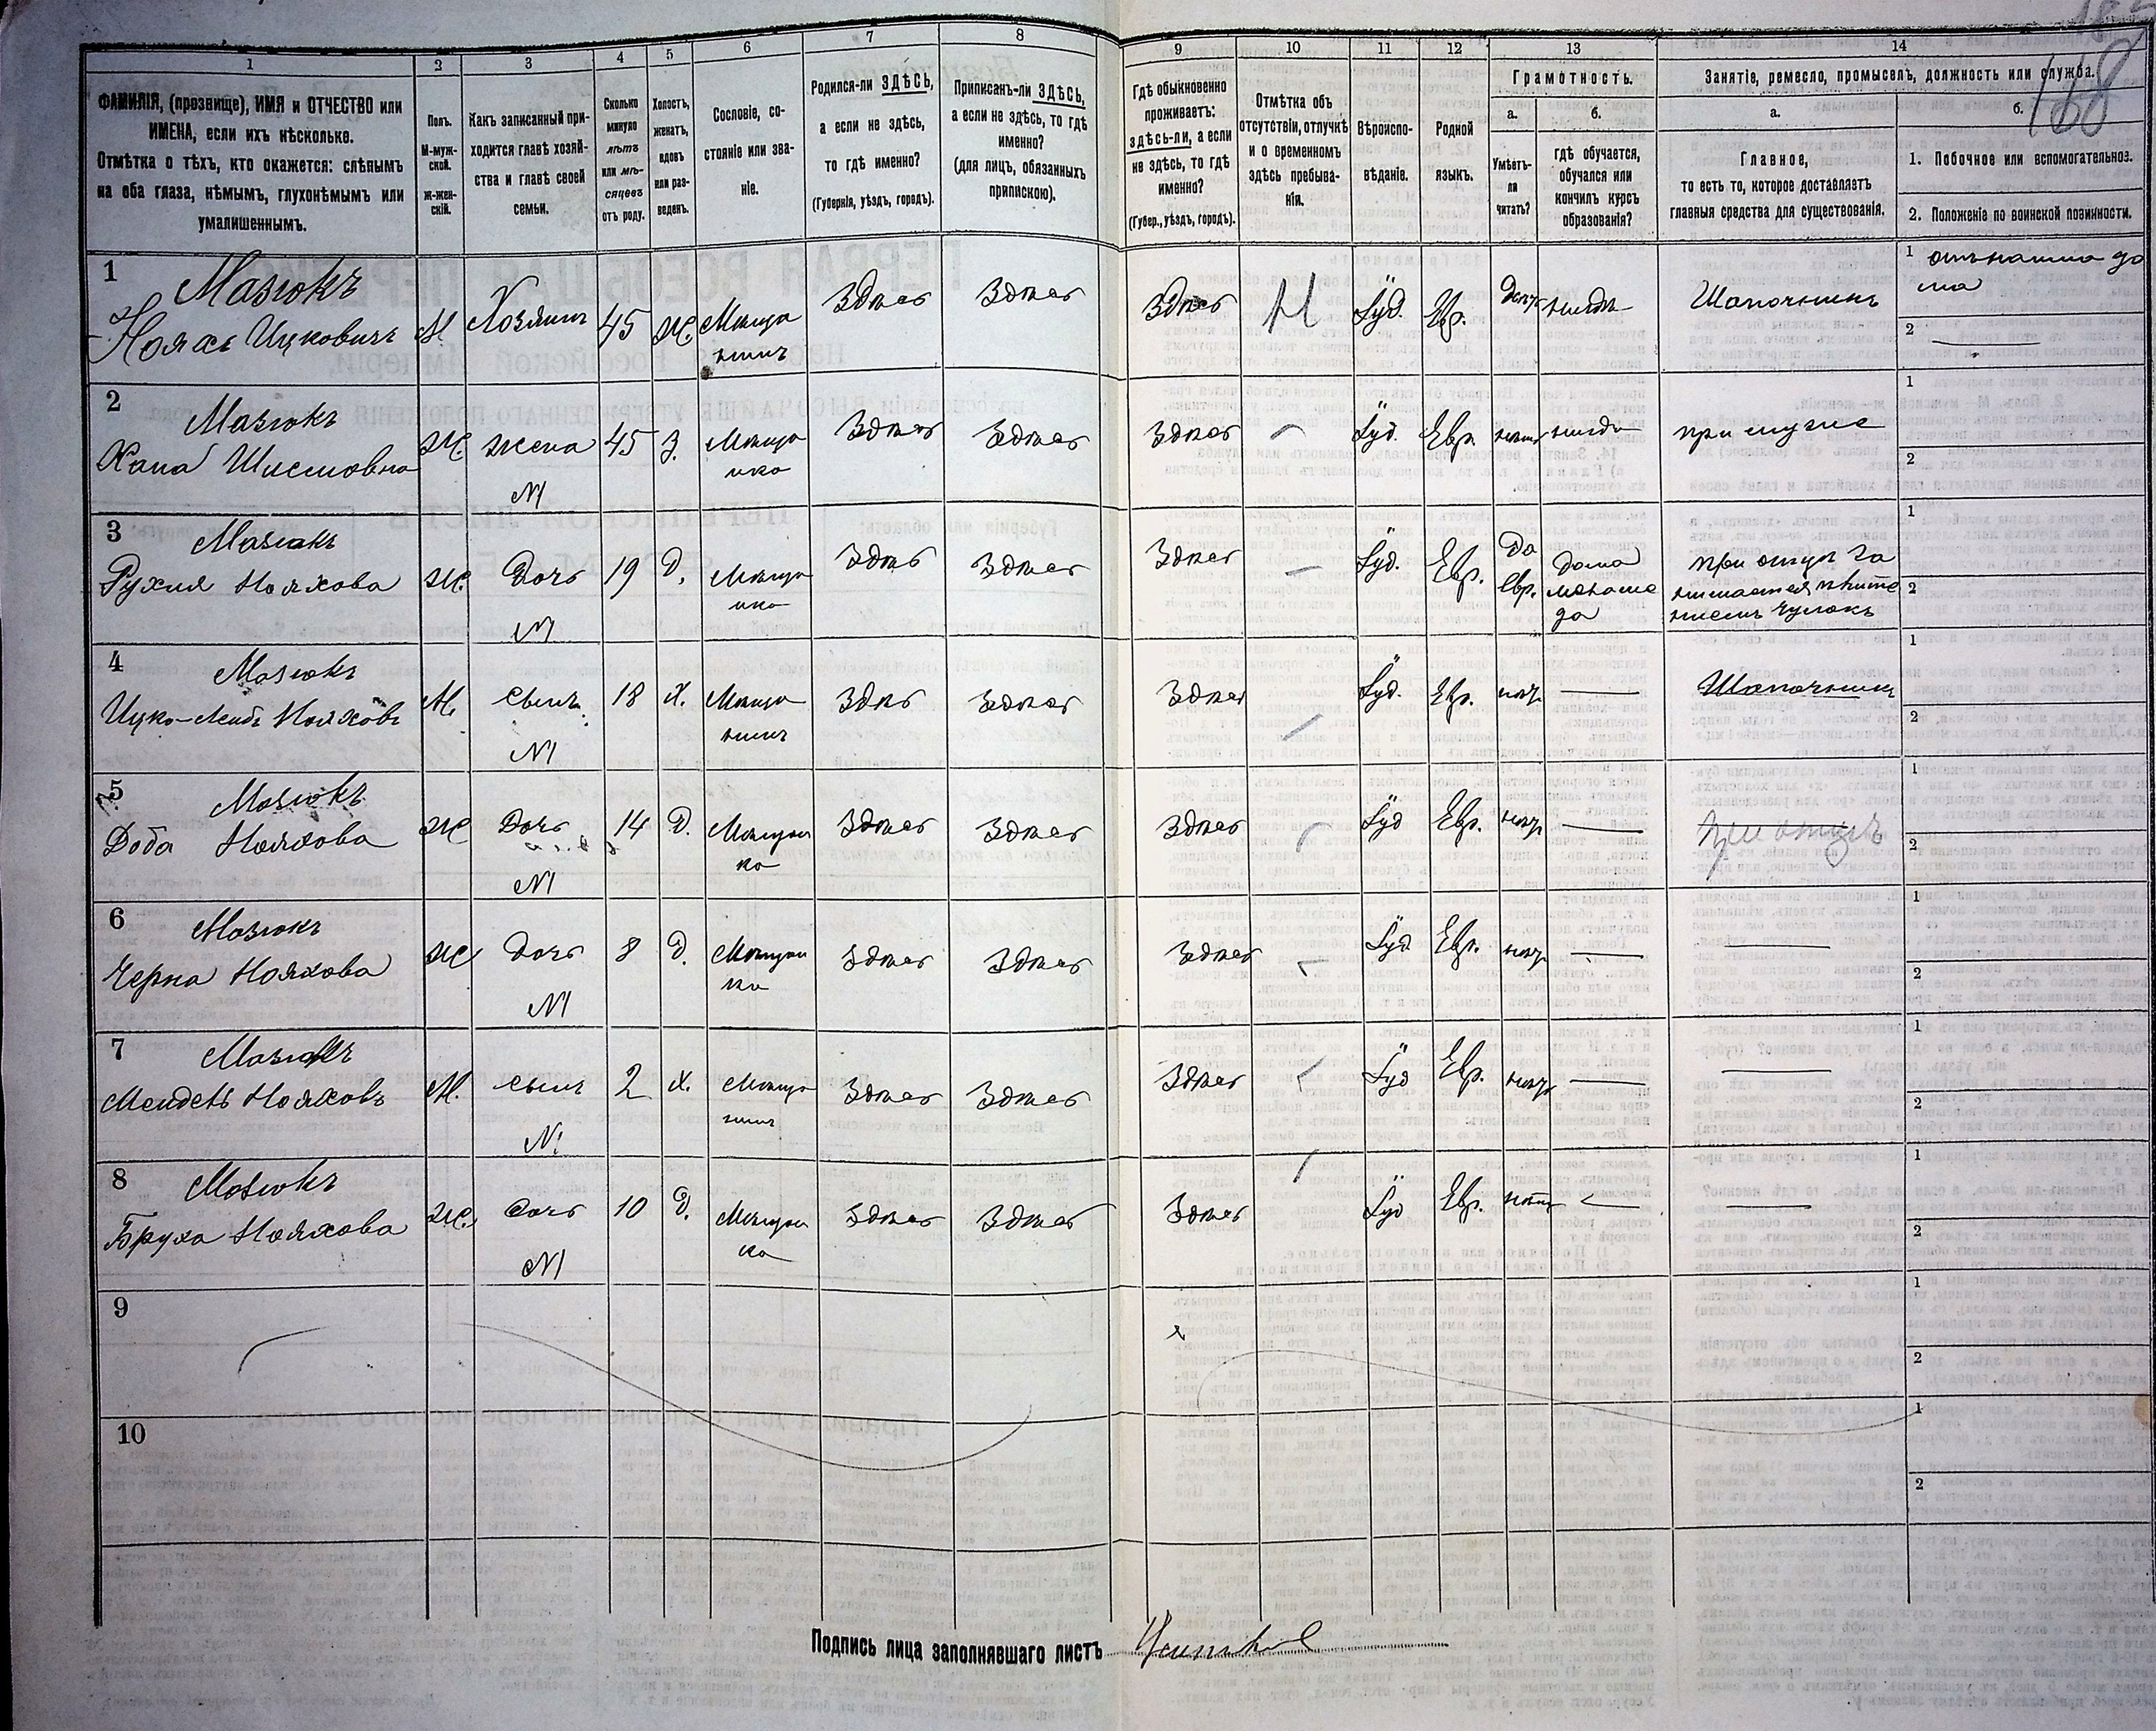 168
1 2 3 4 5 6 7 8 9 10 11 12 13 14
ФАМИЛІЯ, (прозвище), ИМЯ и ОТЧЕСТВО или
ИМЕНА, если ихъ нѣсколько.
Отмѣтка о тѣхъ, кто окажется: слѣпымъ
на оба глаза, нѣмымъ, глухонѣмымъ или
умалишеннымъ.
Полъ.
М-муж-
ской.
ж-жен-
скій.
Какъ записанный при-
ходится главѣ хозяй-
ства и главѣ своей
семьи.
Сколько
минуло
лѣтъ
или мѣ-
сяцевъ
отъ роду.
Холостъ,
женатъ,
вдовъ
или раз-
веденъ.
Сословіе, со-
стояніе или зва-
ніе.
Родился-ли ЗДѢСЬ,
а если не здѣсь,
то гдѣ именно?
(Губернія, уѣздъ, городъ).
Приписанъ-ли ЗДѢСЬ,
а если не здѣсь, то гдѣ
именно?
(для лицъ, обязанныхъ
припискою).
Гдѣ обыкновенно
проживаетъ:
здѣсь-ли, а если
не здѣсь, то гдѣ
именно?
(Губер., уѣздъ, городъ).
Отмѣтка объ
отсутствіи, отлучкѣ
и о временномъ
здѣсь пребыва-
ніи.
Вѣроиспо-
вѣданіе.
Родной
языкъ.
Грамотность.
а.
Умѣетъ-
ли
читать?
б.
гдѣ обучается,
обучался или
кончилъ курсъ
образованія?
Занятіе, ремесло, промыселъ, должность или служба.
а.
Главное,
то есть то, которое доставляетъ
главныя средства для существованія.
б.
1. Побочное или вспомогательное.
2. Положеніе по воинской повинности.
1
Мазюкъ
Нояхъ Ицковичъ М Хозяинъ 45 Ж. Мѣща
нинъ Здѣсь Здѣсь Здѣсь Іуд. Евр. нигдѣ Шапочникъ
1
2
2
Мазюкъ
Хана Ж. жена 45 З. Мѣща
нка Здѣсь Здѣсь Здѣсь – Іуд. Евр. нигдѣ при мужѣ
№1
1
2
3
Мазюкъ
Рухля Нояхова Ж. Дочь 19 Д. Мѣща
нка Здѣсь Здѣсь Здѣсь – Іуд. Евр. Да
Евр. дома
при отцѣ за
нимается
чулокъ
№1
1
2
4
Мазюкъ
Ицко-Лейбъ Нояховъ М. Сынъ 18 Х. Мѣща
нинъ Здѣсь Здѣсь Здѣсь Іуд. Евр. — Шапочникъ
№1
1
2
5
Мазюкъ
Доба Нояхова Ж Дочь 14 Д. Мѣщан
ка Здѣсь Здѣсь Здѣсь Іуд Евр. — при отцѣ
№1
1
2
6
Мазюкъ
Черна Нояхова Ж Дочь 8 Д. Мѣщан
ка Здѣсь Здѣсь Здѣсь Іуд Евр. — —
№1
1
2
7
Мазюкъ
Мендель Нояховъ М. Сынъ 2 Х. Мѣща
нинъ Здѣсь Здѣсь Здѣсь Іуд Евр. — —
№1
1
2
8
Мазюкъ
Бруха Нояхова Ж. Дочь 10 Д. Мѣщан
ка Здѣсь Здѣсь Здѣсь Іуд Евр. — —
№1
1
2
9
1
2
10
1
2
Подпись лица заполнявшаго листъ